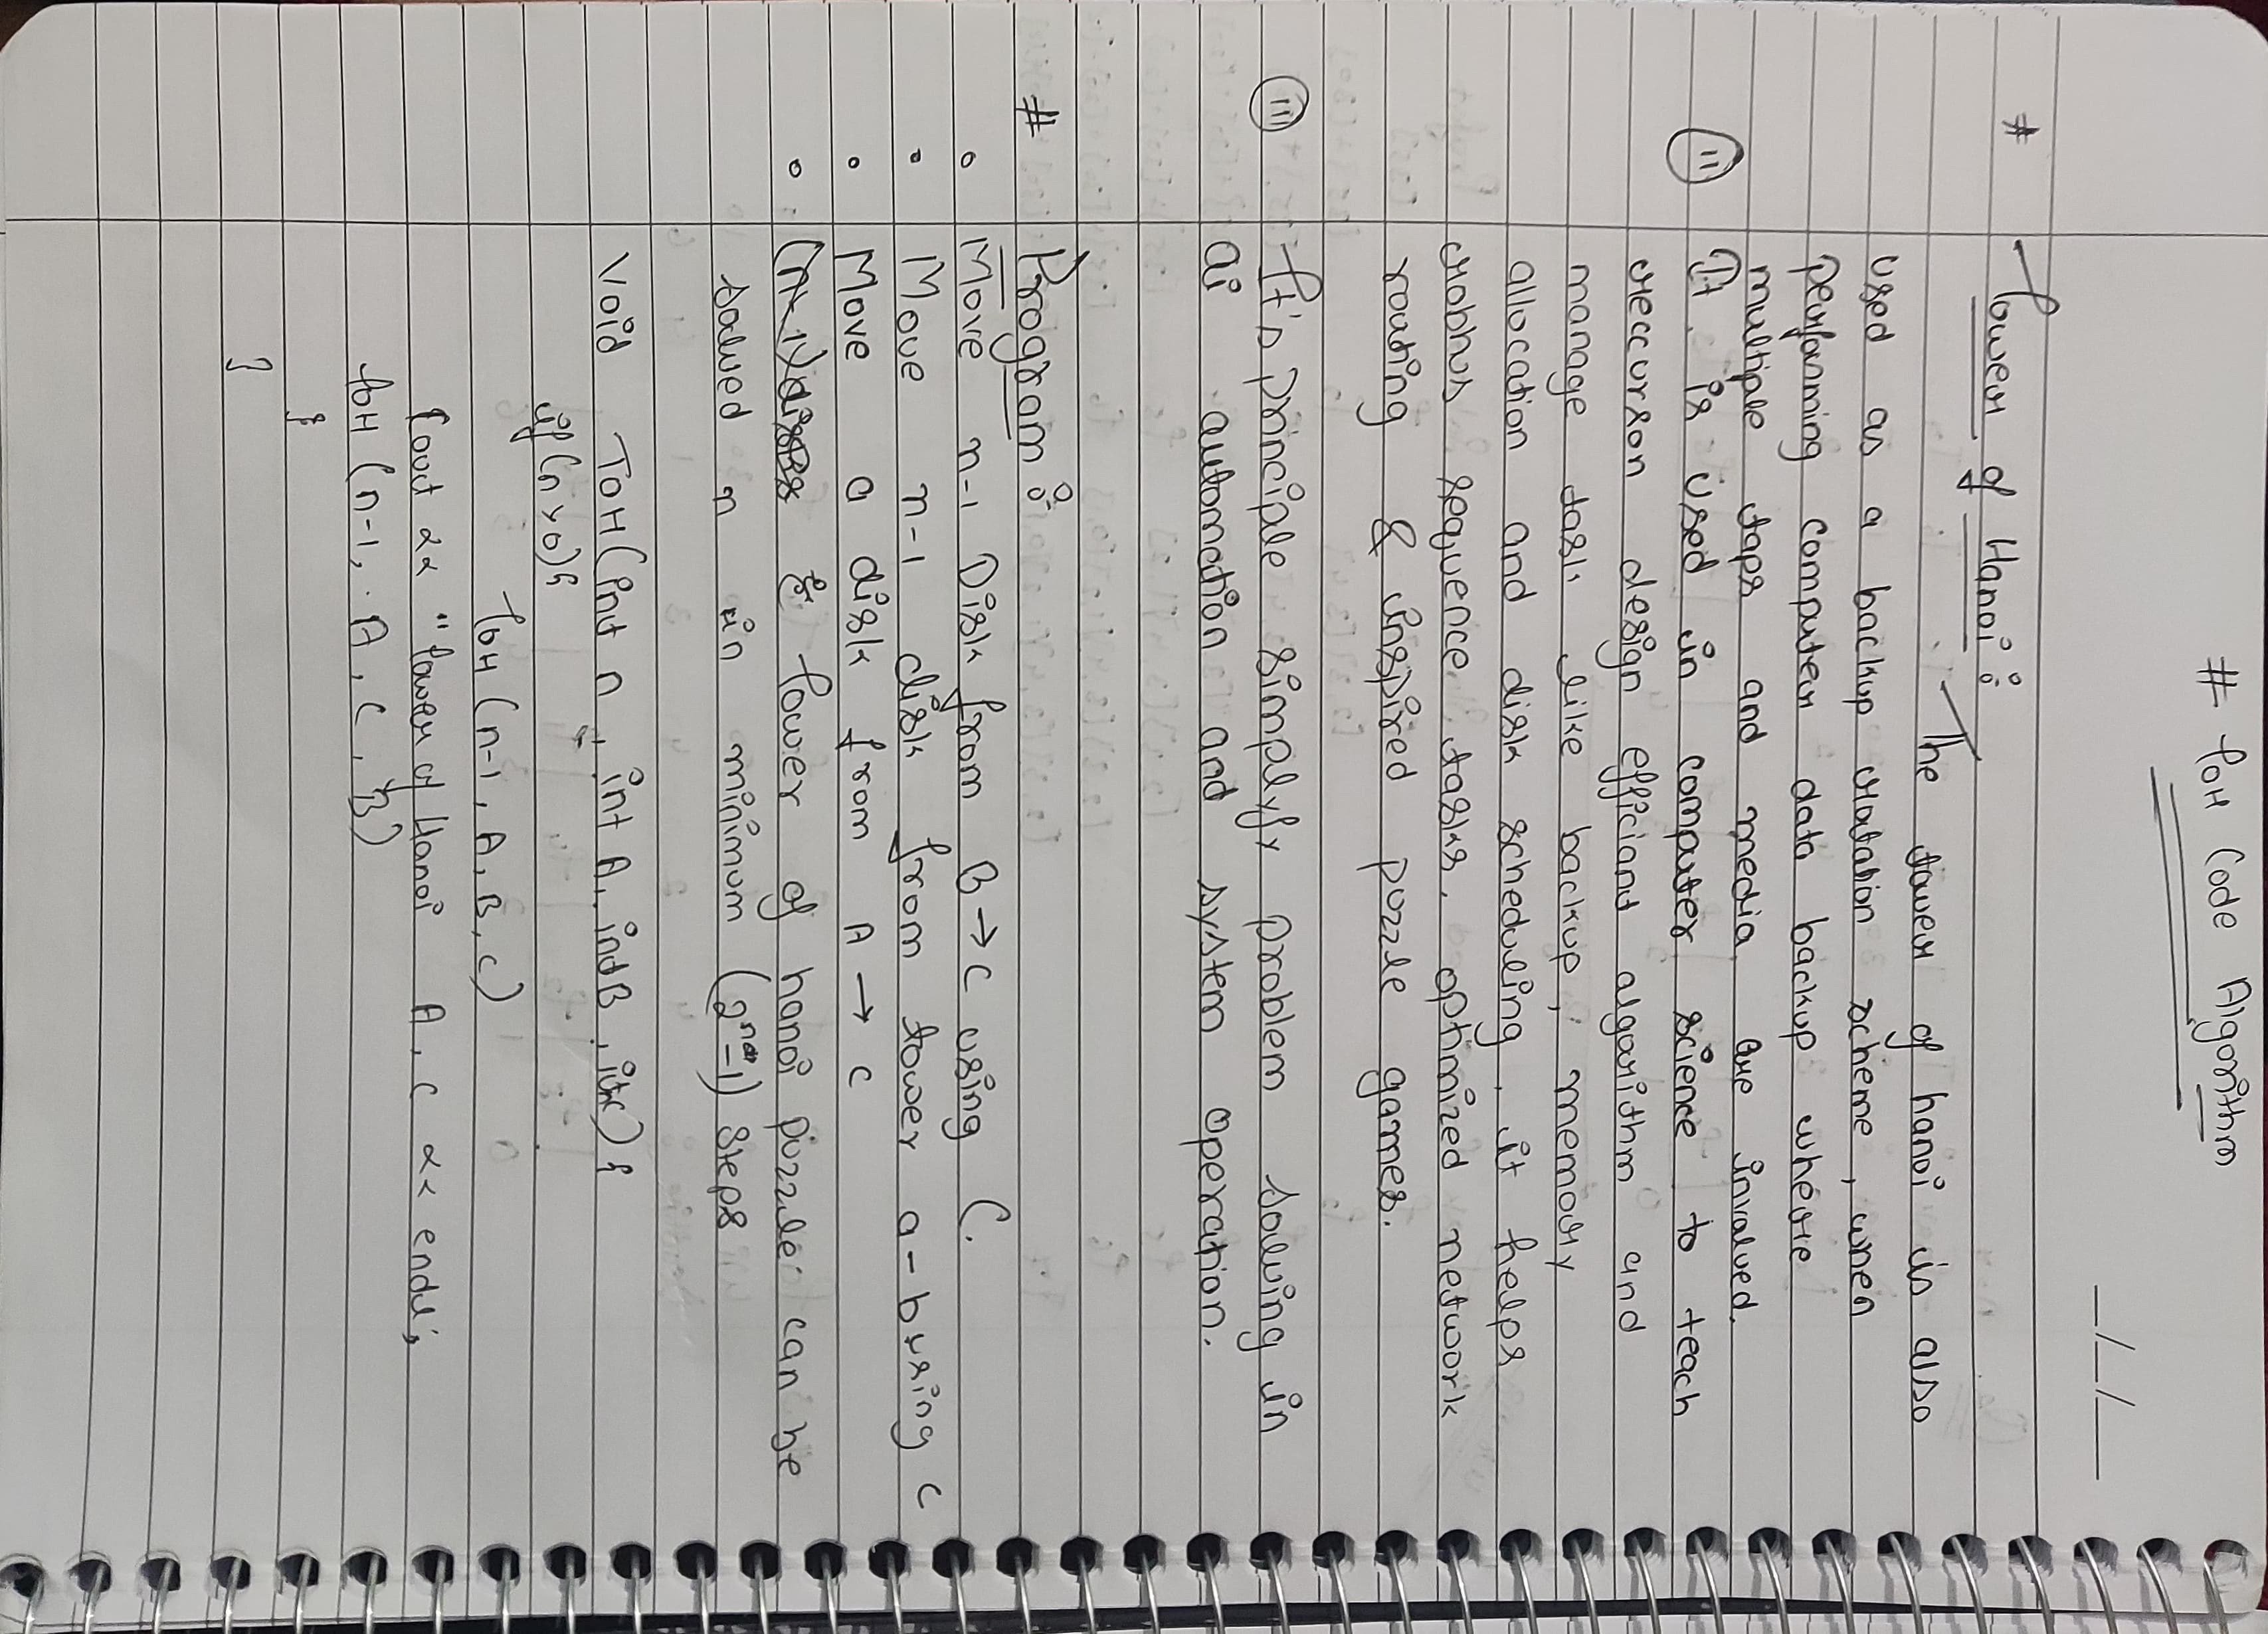 # TOH Code Algorithm
__/__/__
# Tower of Hanoi :
The tower of hanoi is also
used as a backup rotation scheme, when
performing computer data backup where
multiple taps and media are involved.
(ii) It is used in computer science to teach
reccurson design efficiant algorithm and
manage task like backup, memory
allocation and disk scheduling, it helps
robhos sequence tasks, optimized network
routing & inspired puzzle games.
(iii) It's principle simplyfy problem solving in
ai automation and system operation.
# Program :
Move n-1 Disk from B → C using C.
Move n-1 disk from tower a-b using C
Move a disk from A → C
Tower of hanoi puzzle can be
solved n in minimum (2ⁿ-1) steps
Void TOH(int n, int A, int B, itc) {
if(n>0){
TOH (n-1, A, B, C)
Cout << "Tower of Hanoi A, C << endl;
TOH (n-1, A, C, B)
}
}